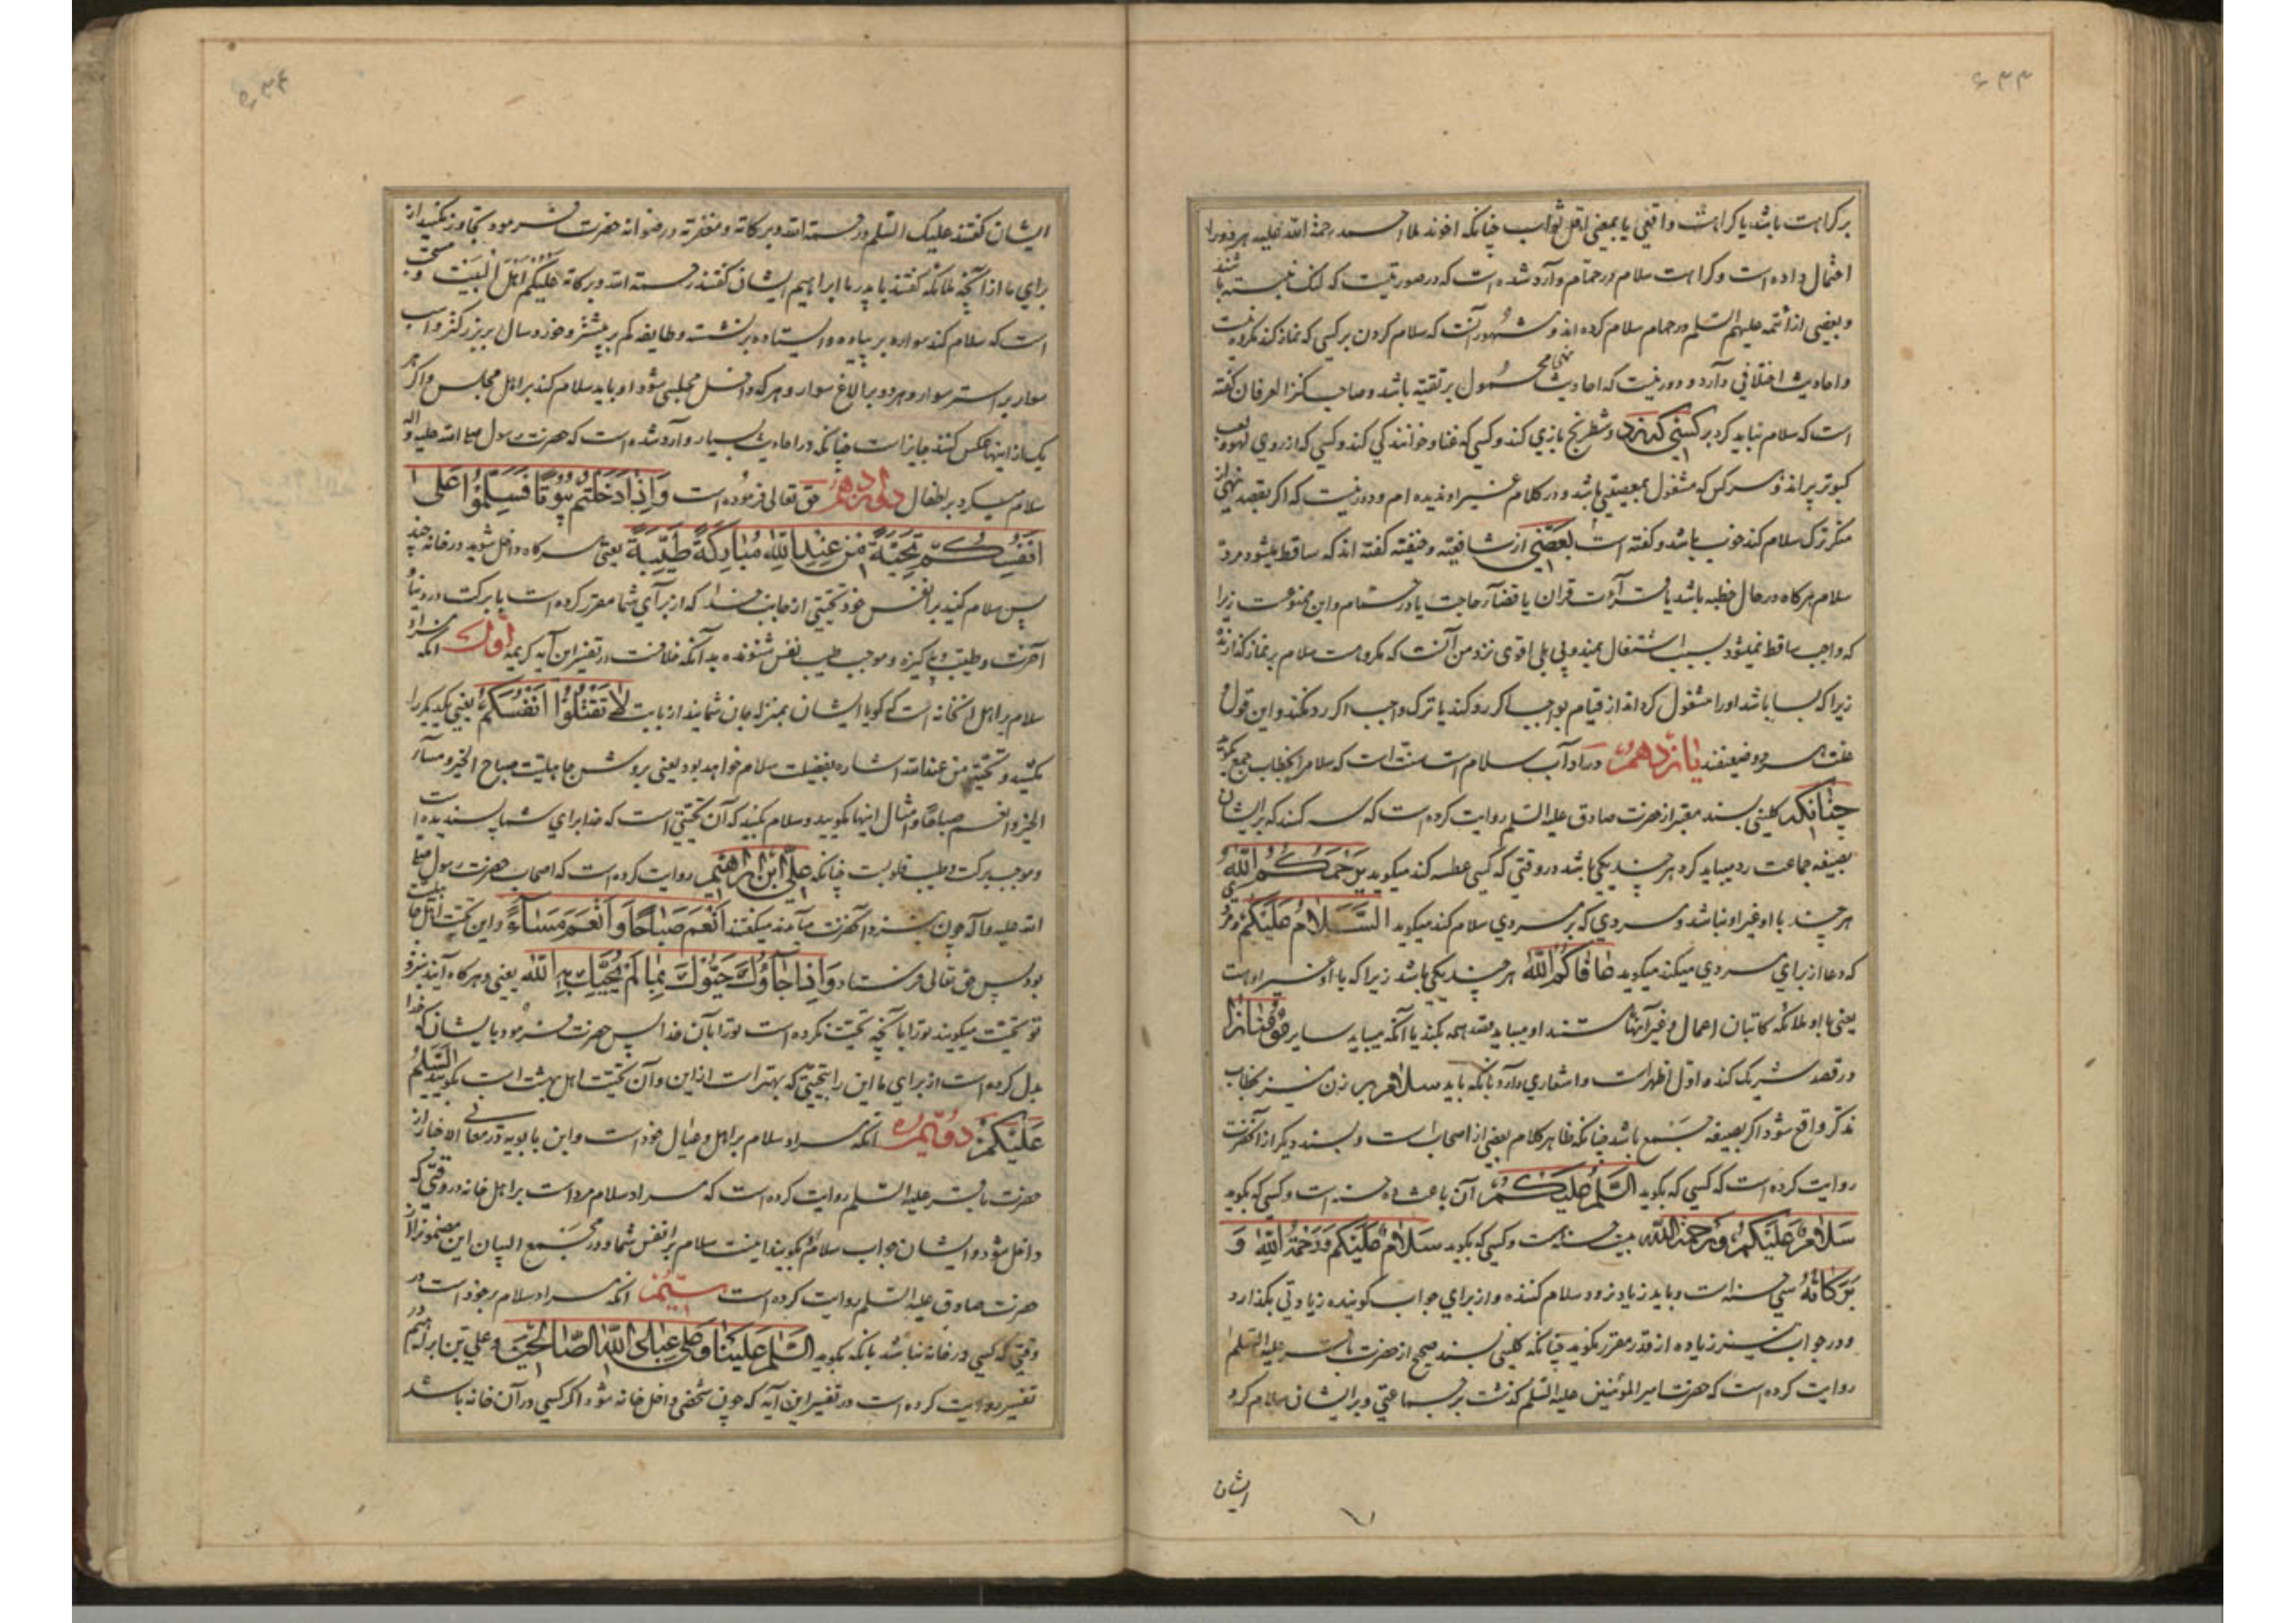 ۶۳۳
بر کراهت باشد یا کراهت واقعی یا بمعنی اقل ثواب چنانکه اخوند ملا احمد رحمة الله علیه هر دو را
احتمال داده است و کراهت سلام در حمام وارد شده است که در صورتیست که لنگ نبسته باشند
و بعضی از ائمه علیهم السلم در حمام سلام کرده اند و مشهور آنست که سلام کردن بر کسی که نماز کند مکروه نیست
و احادیث اختلافی دارد و دور نیست که احادیث نهی محمول بر تقیه باشد و صاحب کنز العرفان گفته
است که سلام نباید کرد بر کسی که نرد و شطرنج بازی کند و کسی که غنا و خوانندگی کند و کسی که از روی لهو و لعب
کبوتر پراند و هر کس که مشغول بمعصیتی باشد و در کلام غیر او ندیده ام و دور نیست که اگر بقصد نهی از
منکر ترک سلام کند خوب باشد و گفته است بعضی از شافعیه و حنفیه گفته اند که ساقط میشود رد
سلام هرگاه در حال خطبه باشد یا قرآءت قران یا قضآء حاجت یا در حمام و این ممنوعست زیرا
که واجب ساقط نمیشود بسبب اشتغال بمندوبی بلی اقوی نزد من آنست که مکروهست سلام بر نماز گذارنده
زیرا که بسا باشد او را مشغول گرداند از قیام بواجب اگر رد کند یا ترک واجب اگر رد نکند و این قول و
علت هر دو ضعیفند یازدهم در آداب سلام است سنت است که سلام را بخطاب جمع بگوید
چنانکه کلینی بسند معتبر از حضرت صادق علیه السلم روایت کرده است که سه کسند که بر ایشان
بصیغه جماعت رد میباید کرد هر چند یکی باشد در وقتی که کسی عطسه کند میگوید یرحمکم الله
هر چند با او غیر او نباشد و مردی که بر مردی سلام کند میگوید السلام علیکم و مردی
که دعا از برای مردی میکند میگوید عافاکم الله هر چند یکی باشد زیرا که با او غیر او هست
یعنی با او ملائکه کاتبان اعمال و غیر آنها هستند او میباید قصد همه بکند یا آنکه میباید سایر مؤمنانرا
در قصد شریک کند و اول اظهر است و اشعاری دارد بآنکه باید سلام بر زن نیز بخطاب
مذکر واقع شود اگر بصیغه جمع باشد چنانکه ظاهر کلام بعضی از اصحاب است و بسند دیگر از آنحضرت
روایت کرده است که کسی که بگوید السلم علیکم آن باعث ده حسنه است و کسی که بگوید
سلام علیکم و رحمة الله بیست حسنه است و کسی که بگوید سلام علیکم و رحمة الله و
برکاته سی حسنه است و باید زیاد نرود سلام کننده و از برای جواب گوینده زیادتی بگذارد
و در جواب نیز زیاده از قدر مقرر نگوید چنانکه کلینی بسند صحیح از حضرت باقر علیه السلم
روایت کرده است که حضرت امیر المؤمنین علیه السلم گذشت بر جماعتی و بر ایشان سلام کرد
ایشان
۶۳۴
ایشان گفتند علیک السلم و رحمة الله و برکاته و مغفرته و رضوانه حضرت فرمود تجاوز نکنید از
برای ما از آنچه ملائکه گفتند با پدر ما ابراهیم ایشان گفتند رحمة الله و برکاته علیکم اهل البیت و مستحب
است که سلام کند سواره بر پیاده و ایستاده بر نشسته و طایفه کم بر بیشتر و خورد سال بر بزرگتر و اسب
سوار بر استر سوار و هر دو بر الاغ سوار و هر که داخل مجلسی شود او باید سلام کند بر اهل مجلس و اگر هر
یک از اینها عکس کنند جایز است چنانکه در احادیث بسیار وارد شده است که حضرت رسول صلی الله علیه و اله
سلام میکرد بر اطفال دوازدهم حق تعالی فرموده است وَإِذَا دَخَلْتُمْ بُيُوتًا فَسَلِّمُوا عَلَى
أَنْفُسِكُمْ تَحِيَّةً مِنْ عِنْدِ اللَّهِ مُبَارَكَةً طَيِّبَةً یعنی هرگاه داخل شوید در خانه چند
پس سلام کنید بر انفس خود تحیتی از جانب خدا که از برای شما مقرر کرده است با برکت در دنیا و
آخرت و طیب و پاکیزه و موجب طیب نفس شنونده بدانکه خلافست در تفسیر این آیه کریمه اول آنکه مراد
سلام بر اهل آنخانه است که گویا ایشان بمنزله جان شمایند از بابت لَا تَقْتُلُوا أَنْفُسَكُمْ یعنی یکدیگر را
مکشید و تحیتی من عند الله اشاره بفضیلت سلام خواهد بود یعنی بروش جاهلیت صباح الخیر و مسآء
الخیر و انعم صباحا و امثال اینها نگویید و سلام بکنید که آن تحیتی است که خدا برای شما پسندیده است
و موجب برکت و طیب قلوبست چنانکه علی ابن ابراهیم روایت کرده است که اصحاب حضرت رسول صلی
الله علیه و آله چون بنزد آنحضرت میآمدند میگفتند انعم صباحا و انعم مساء و این تحیت اهل جاهلیت
بود پس حق تعالی فرستاد وَإِذَا جَاؤُكَ حَيَّوْكَ بِمَا لَمْ يُحَيِّكَ بِهِ اللَّهُ یعنی و هرگاه آیند نزد
تو تحیت میگویند تو را بآنچه تحیت نکرده است تو را بآن خدا پس حضرت فرمود با ایشان که خدا
بدل کرده است از برای ما این را بتحیتی که بهتر است از این و آن تحیت اهل بهشت است بگویید السلم
علیکم دویم آنکه مراد سلام بر اهل و عیال خود است و ابن بابویه در معانی الاخبار از
حضرت باقر علیه السلم روایت کرده است که مراد سلام مرد است بر اهل خانه در وقتی که
داخل شود و ایشان جواب سلام او بگویند اینست سلام بر انفس شما و در مجمع البیان این مضمونرا از
حضرت صادق علیه السلم روایت کرده است سیم آنکه مراد سلام بر خود است در
وقتی که کسی در خانه نباشد بآنکه بگوید السلم علینا و علی عباد الله الصالحین و علی بن ابراهیم در
تفسیر روایت کرده است در تفسیر این آیه که چون شخصی داخل خانه شود اگر کسی در آن خانه باشد